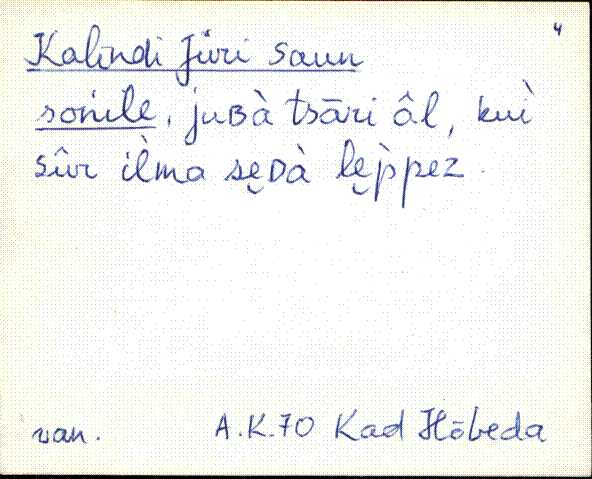 4
Kalīndi Jüri saun
sońile, juʙà tsāri âl, kuì
sûr ìlma sȩᴅà lȩ̀ppez.
van. A.K.70 Kad Hõbeda